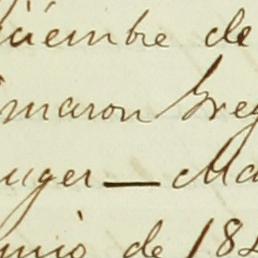 ciembre de
imaron Greg
uger — Ma
unio de 184